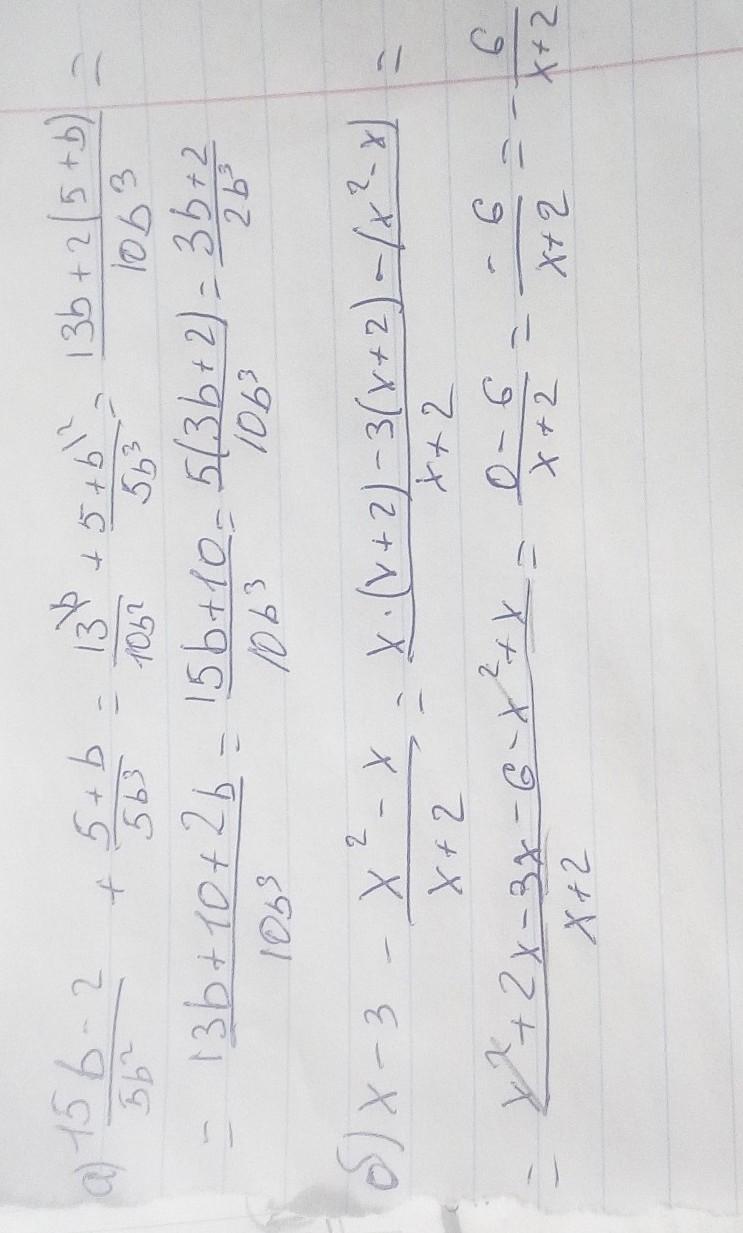 а) \frac{15b-2}{5b^2} + \frac{5+b}{5b^3} = \frac{13^{\backslash b}}{10b^2} + \frac{5+b^{\backslash 2}}{5b^3} = \frac{13b+2(5+b)}{10b^3} =
= \frac{13b+10+2b}{10b^3} = \frac{15b+10}{10b^3} = \frac{5(3b+2)}{10b^3} = \frac{3b+2}{2b^3}
б) x-3 - \frac{x^2-x}{x+2} = \frac{x·(x+2)-3(x+2)-(x^2-x)}{x+2} =
= \frac{x^2+2x-3x-6-x^2+x}{x+2} = \frac{0-6}{x+2} = \frac{-6}{x+2} = -\frac{6}{x+2}